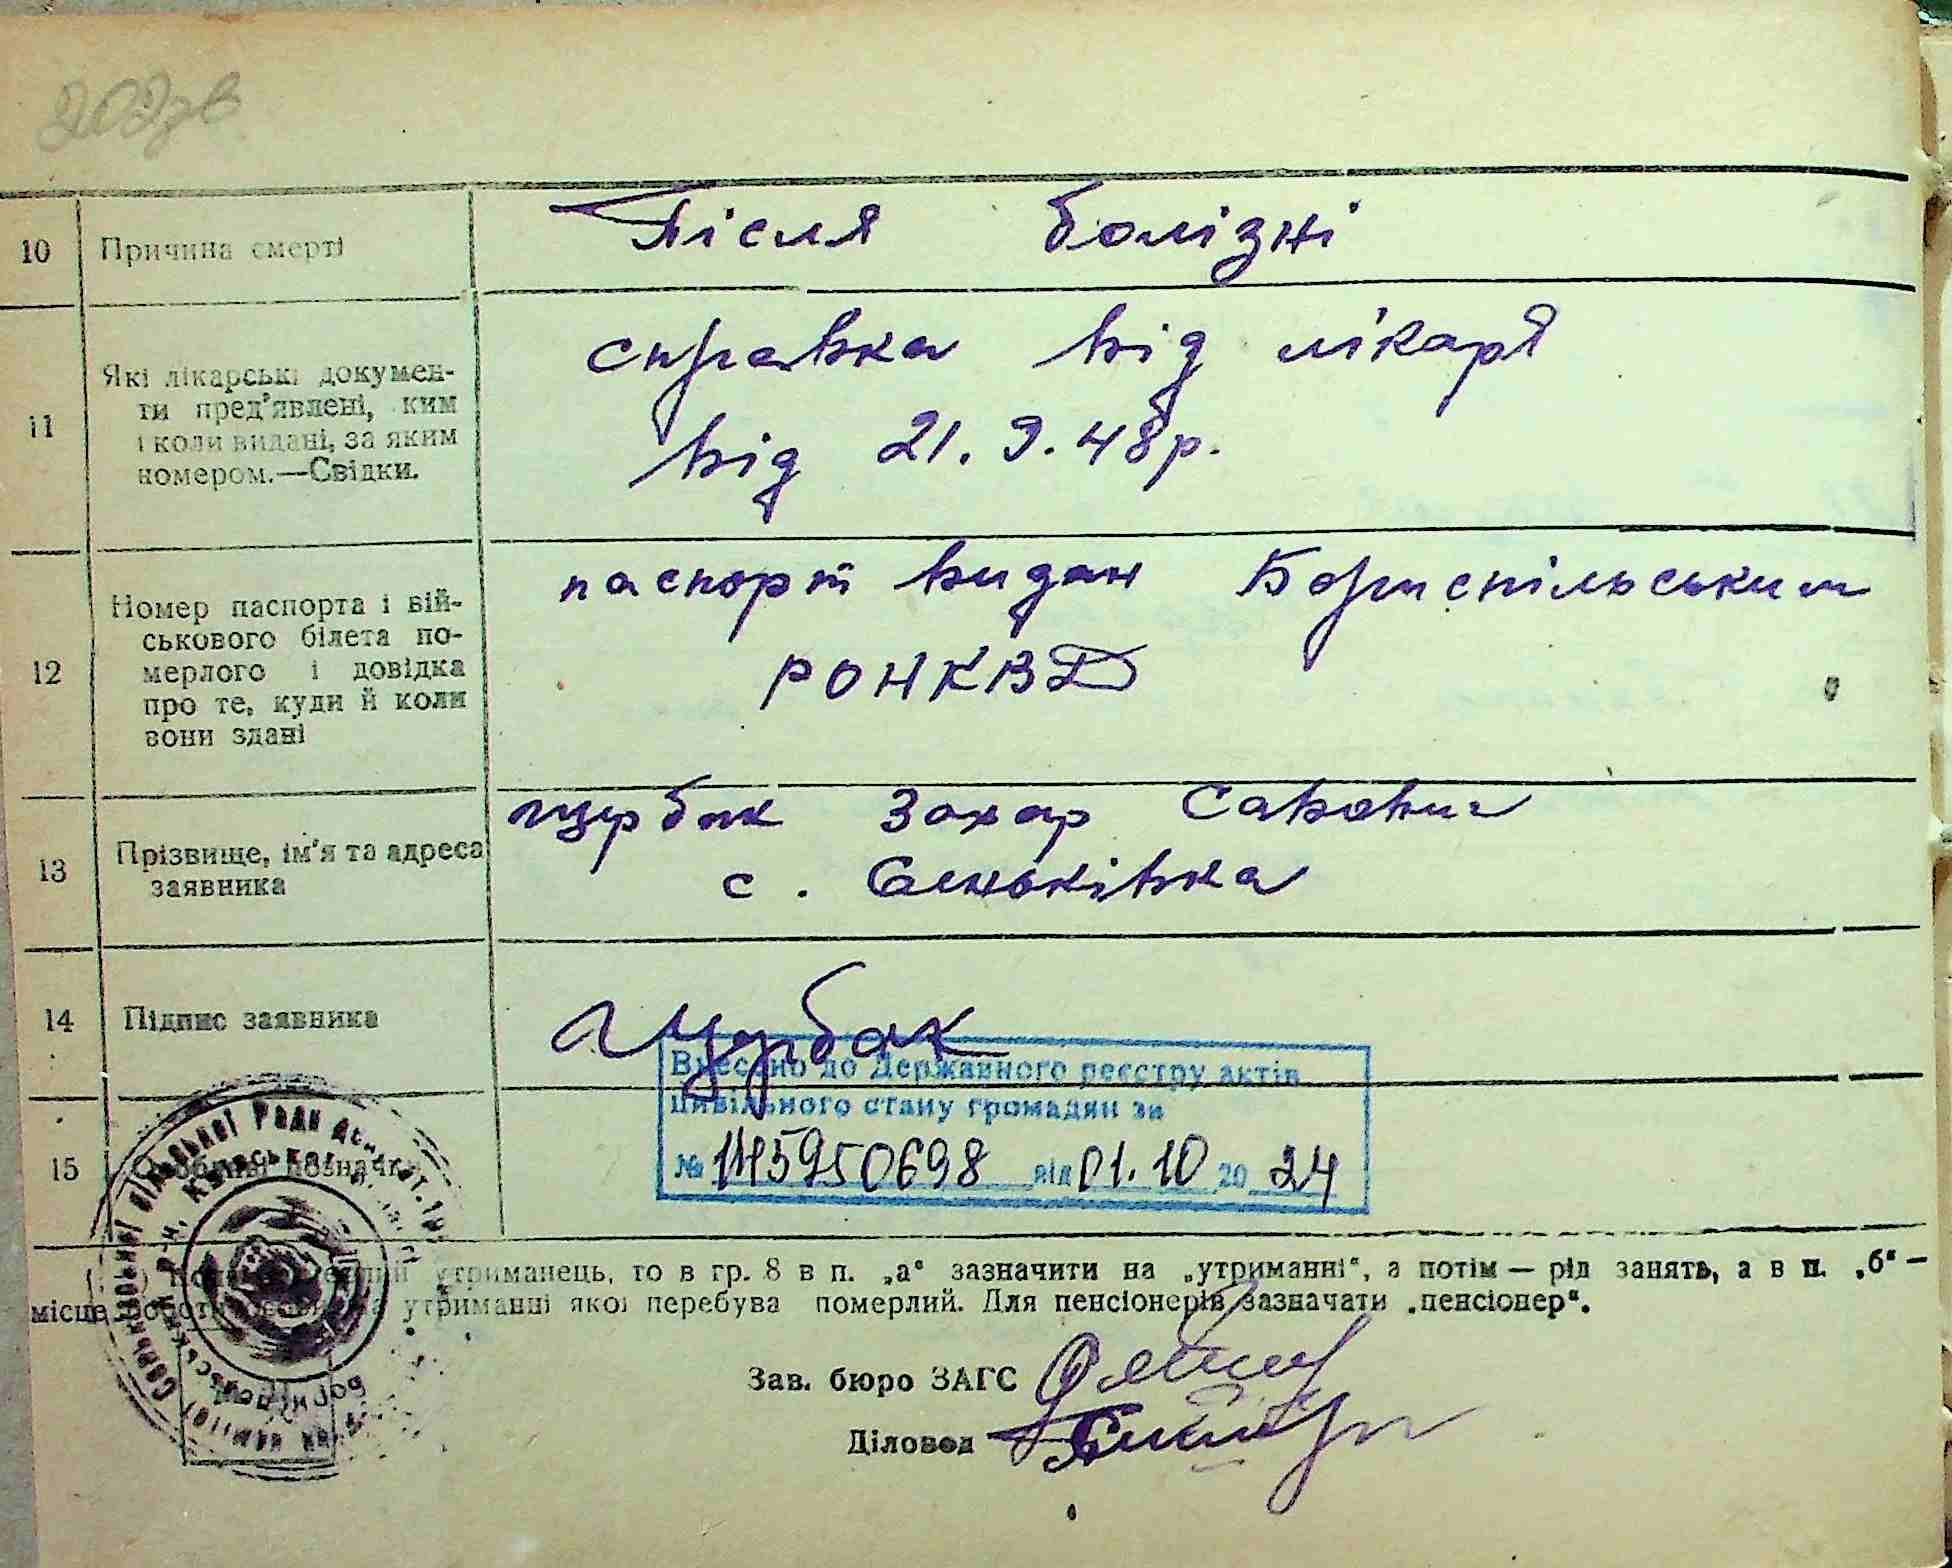 202зв
10 Причина смерті Після болізні
11 Які лікарські докумен-
ти пред'явлені, ким
і коли видані, за яким
номером.—Свідки.
справка від лікаря
від 21.9.48р.
12 Номер паспорта і вій-
ськового білета по-
мерлого і довідка
про те, куди й коли
вони здані
паспорт видан Бориспільським
РОНКВД
13 Прізвище, ім'я та адреса
заявника
щрбак Захар Савович
с. Сеньківка
14 Підпис заявника Щурбак
Внесено до Державного реєстру актів
цивільного стану громадян за
№ 1145950698 від 01.10 2024
15 Особливі позначки
утриманець, то в гр. 8 в п. „а“ зазначити на „утриманні“, а потім — рід занять, а в п. „б“ —
місце роботи утриманні якої перебува померлий. Для пенсіонерів зазначати „пенсіонер“.
Зав. бюро ЗАГС
Діловод